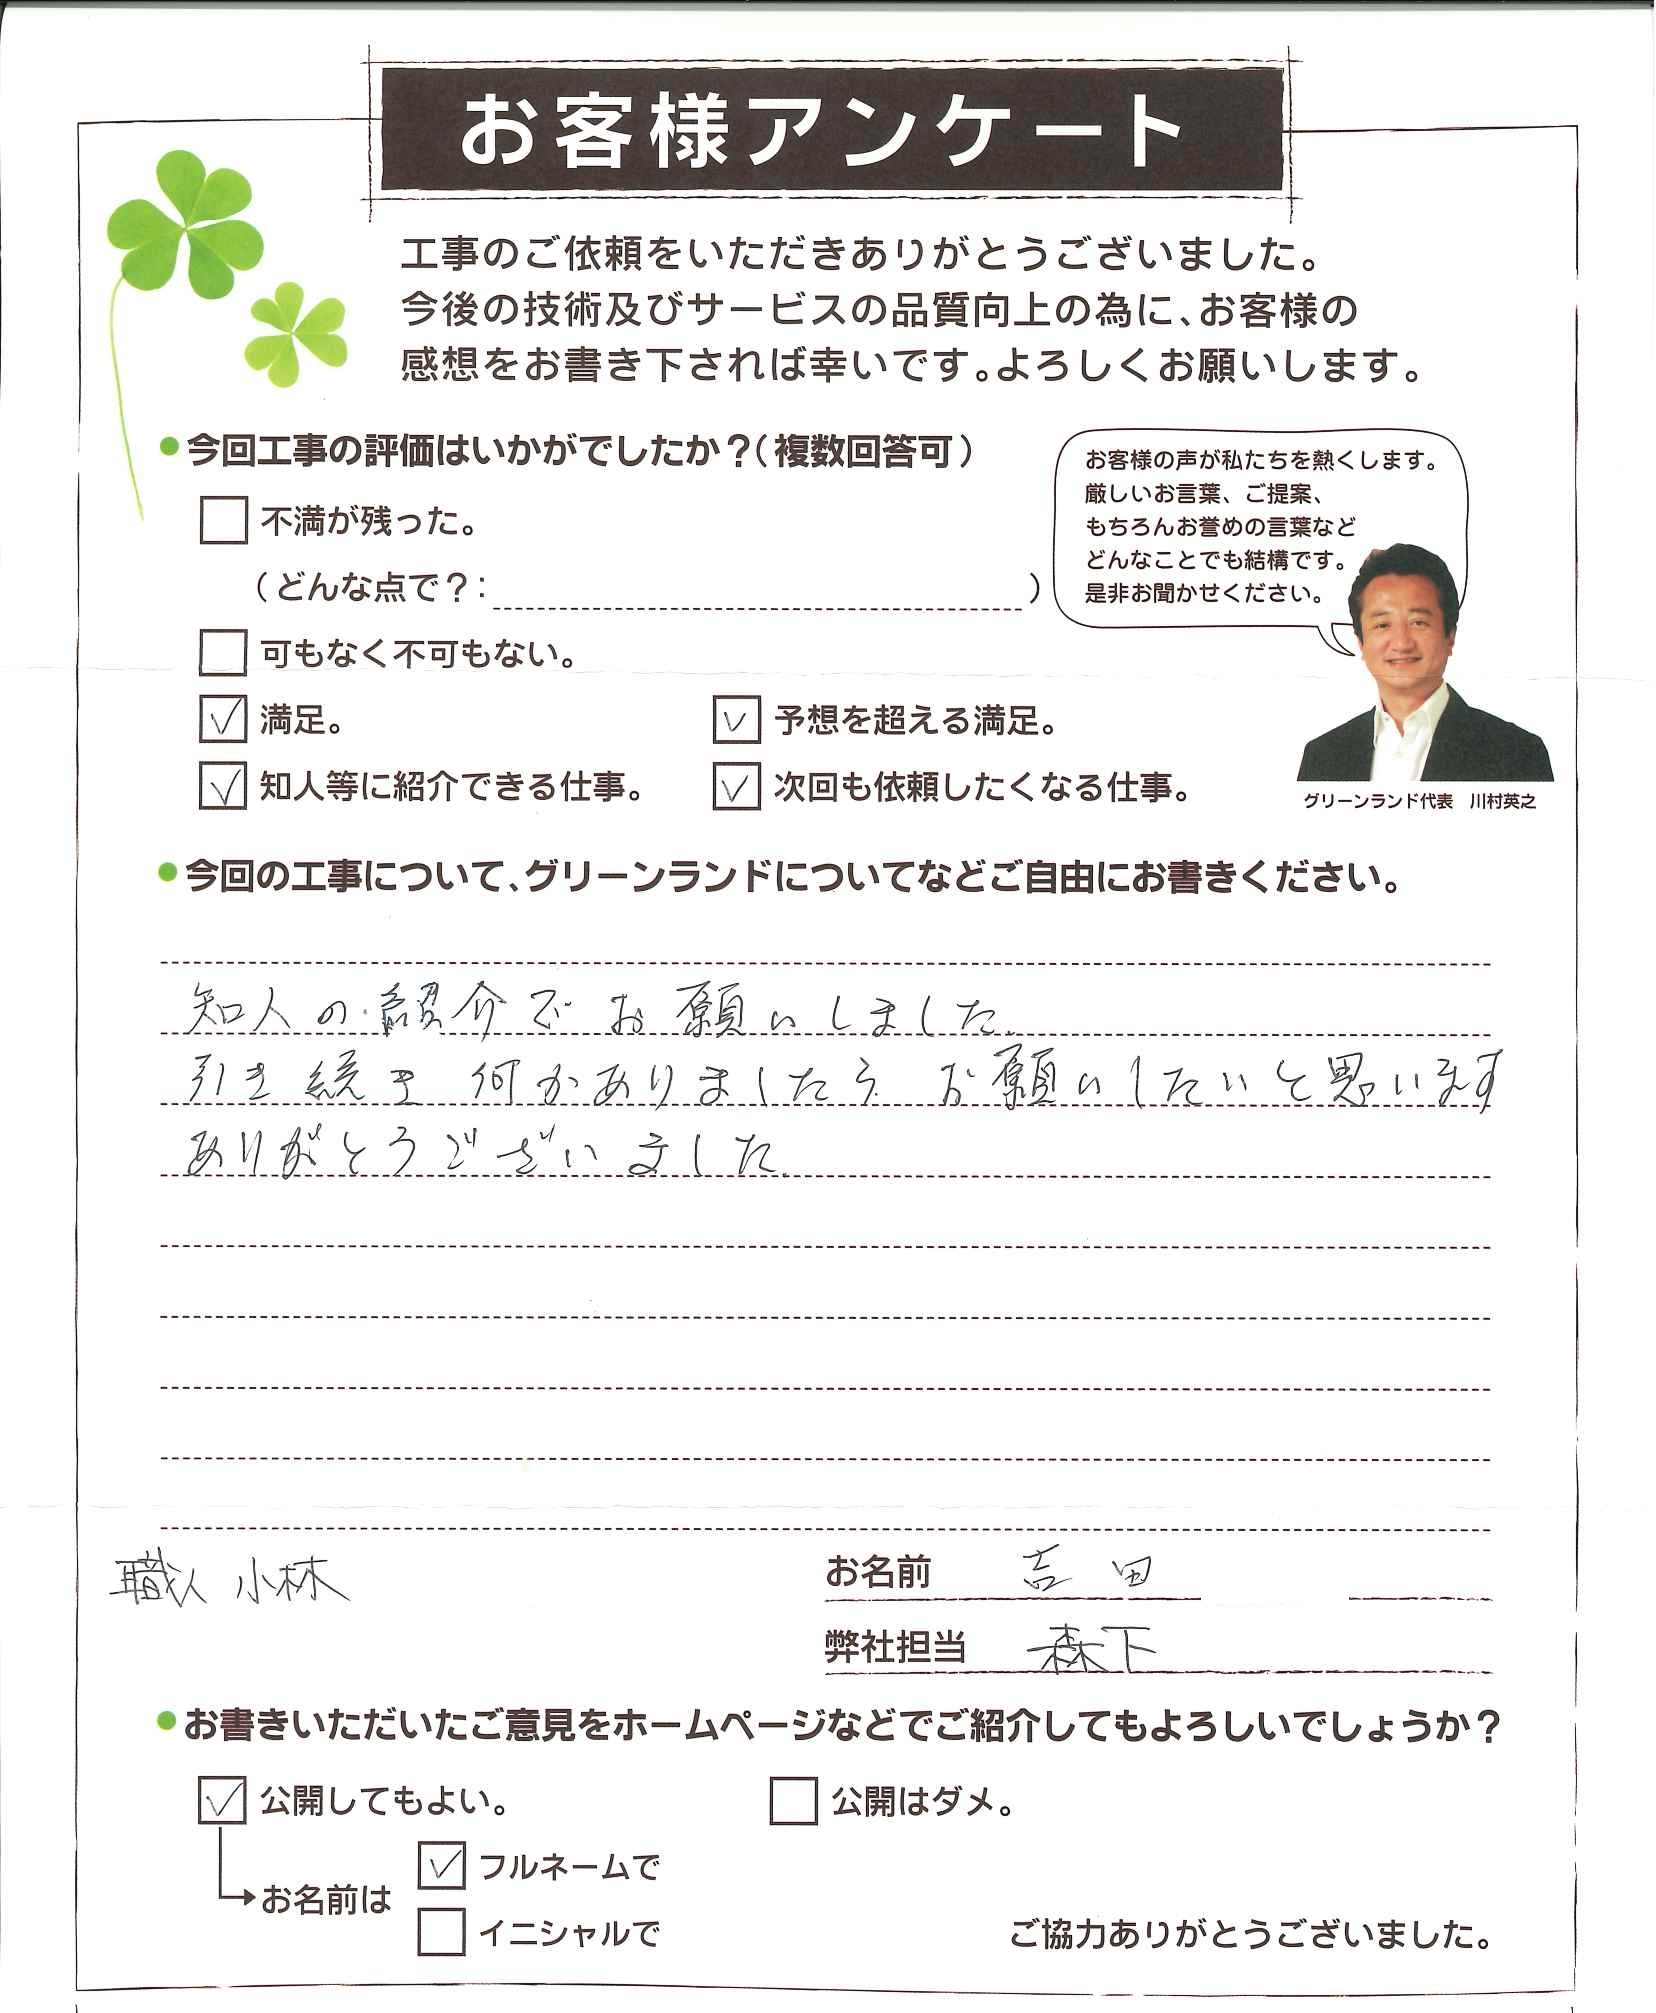 お客様アンケート
工事のご依頼をいただきありがとうございました。
今後の技術及びサービスの品質向上の為に、お客様の
感想をお書き下されば幸いです。よろしくお願いします。
●今回工事の評価はいかがでしたか？（複数回答可）
不満が残った。
（どんな点で？：　）
可もなく不可もない。
満足。
予想を超える満足。
知人等に紹介できる仕事。
次回も依頼したくなる仕事。
お客様の声が私たちを熱くします。
厳しいお言葉、ご提案、
もちろんお誉めの言葉など
どんなことでも結構です。
是非お聞かせください。
グリーンランド代表　川村英之
●今回の工事について、グリーンランドについてなどご自由にお書きください。
知人の紹介でお願いしました。
引き続き何かありましたらお願いしたいと思います
ありがとうございました。
職人 小林
お名前 吉田
弊社担当 森下
●お書きいただいたご意見をホームページなどでご紹介してもよろしいでしょうか？
公開してもよい。
公開はダメ。
お名前は
フルネームで
イニシャルで
ご協力ありがとうございました。